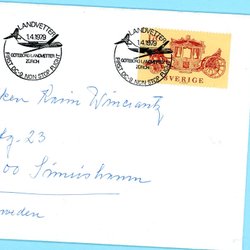 LANDVETTER
1.4.1979
GÖTEBORG-LANDVETTER
ZÜRICH
FIRST DC-9 NON STOP FLIGHT
LANDVETTER
1.4.1979
GÖTEBORG-LANDVETTER
ZÜRICH
FIRST DC-9 NON STOP FLIGHT
SVERIGE
23
00 Simrishamn
weden